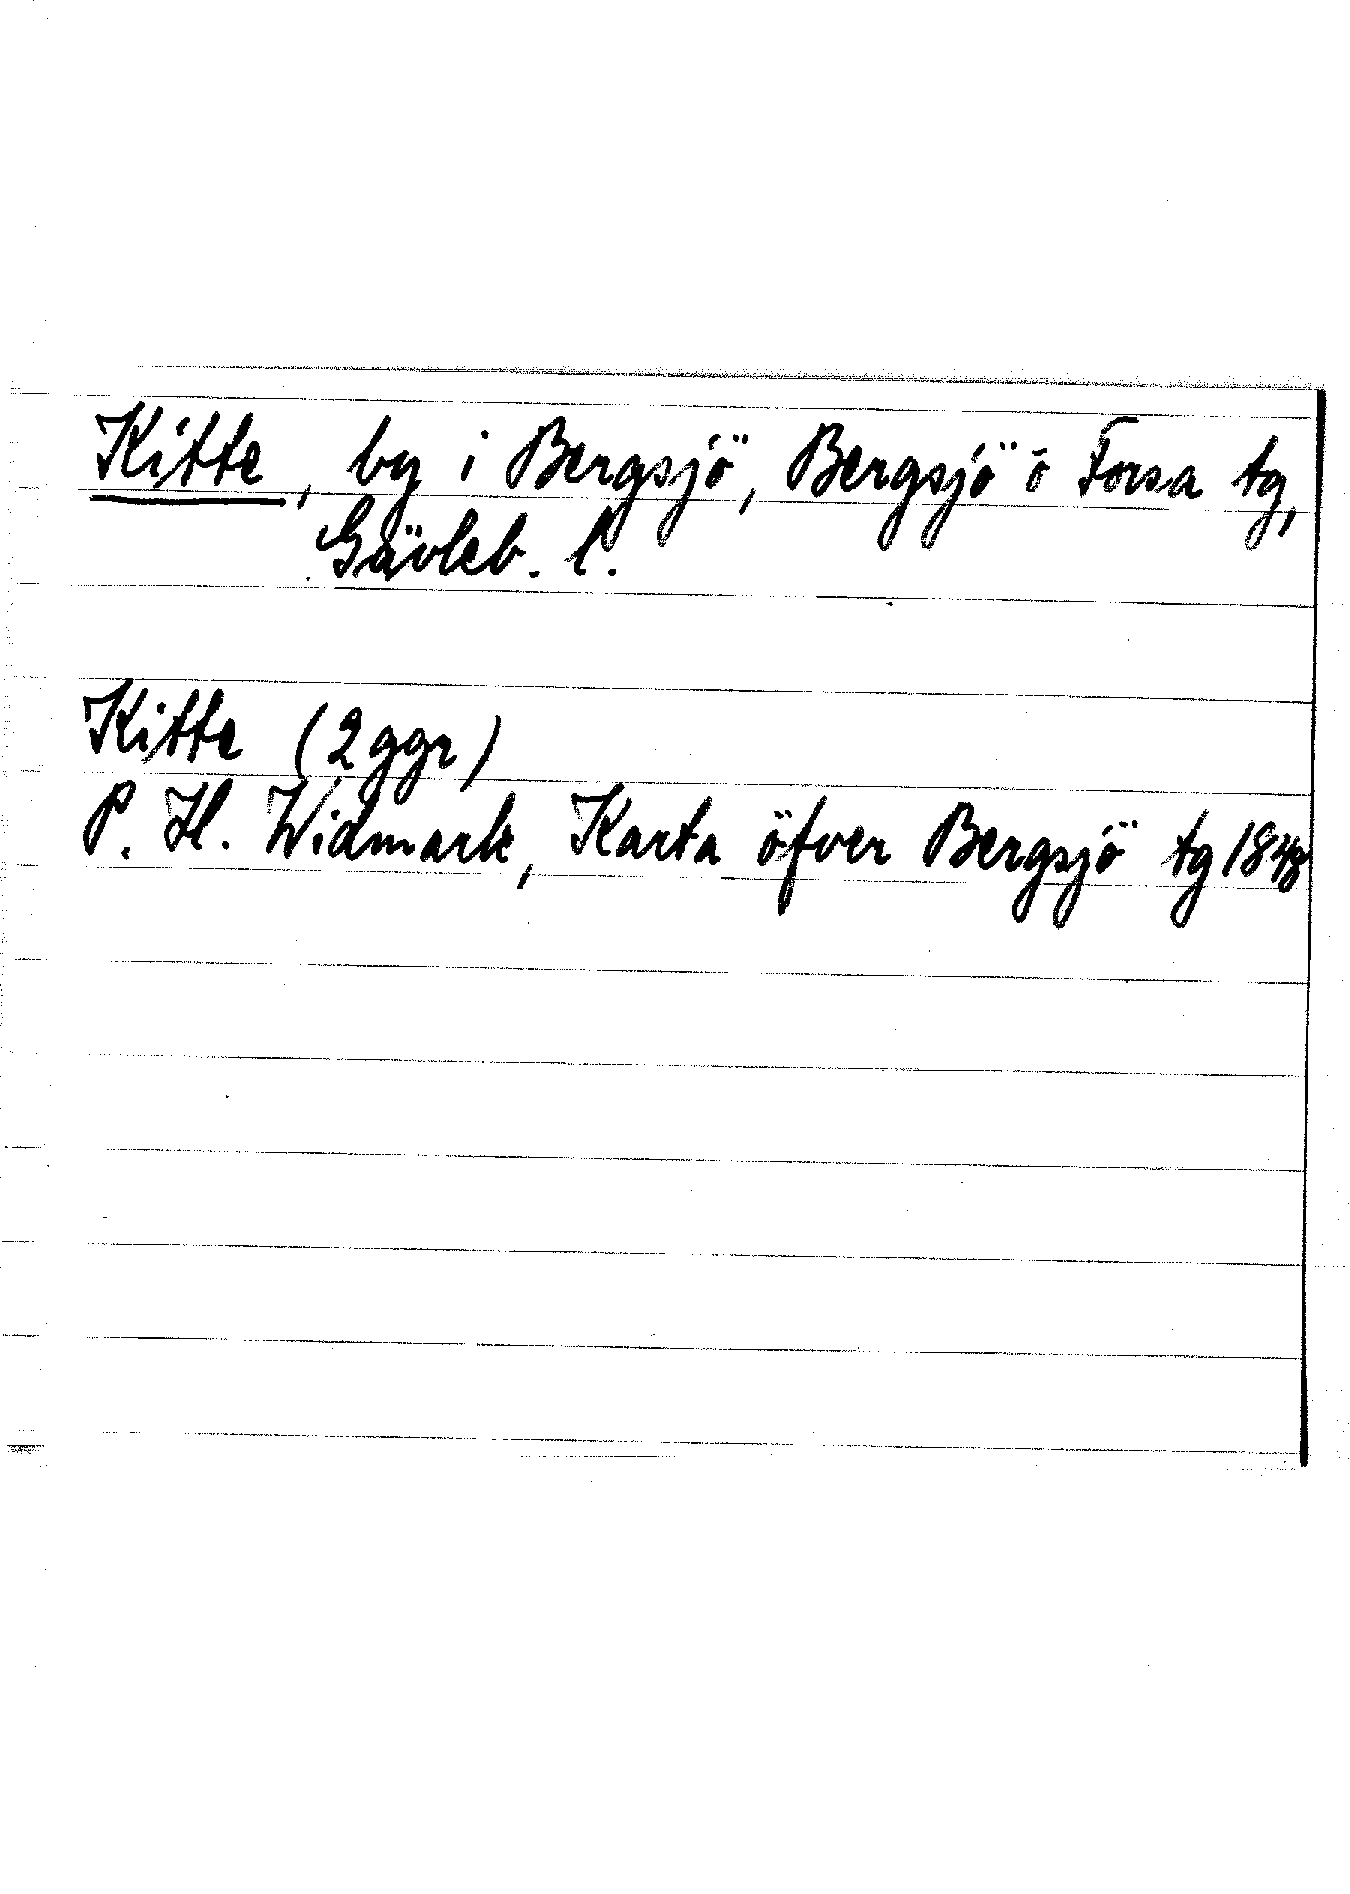 Kitte, by i Bergsjö, Bergsjö o Forsa tg,
Gävleb. l.
Kitte (2 ggr)
P. H. Widmark, Karta öfver Bergsjö tg 1848